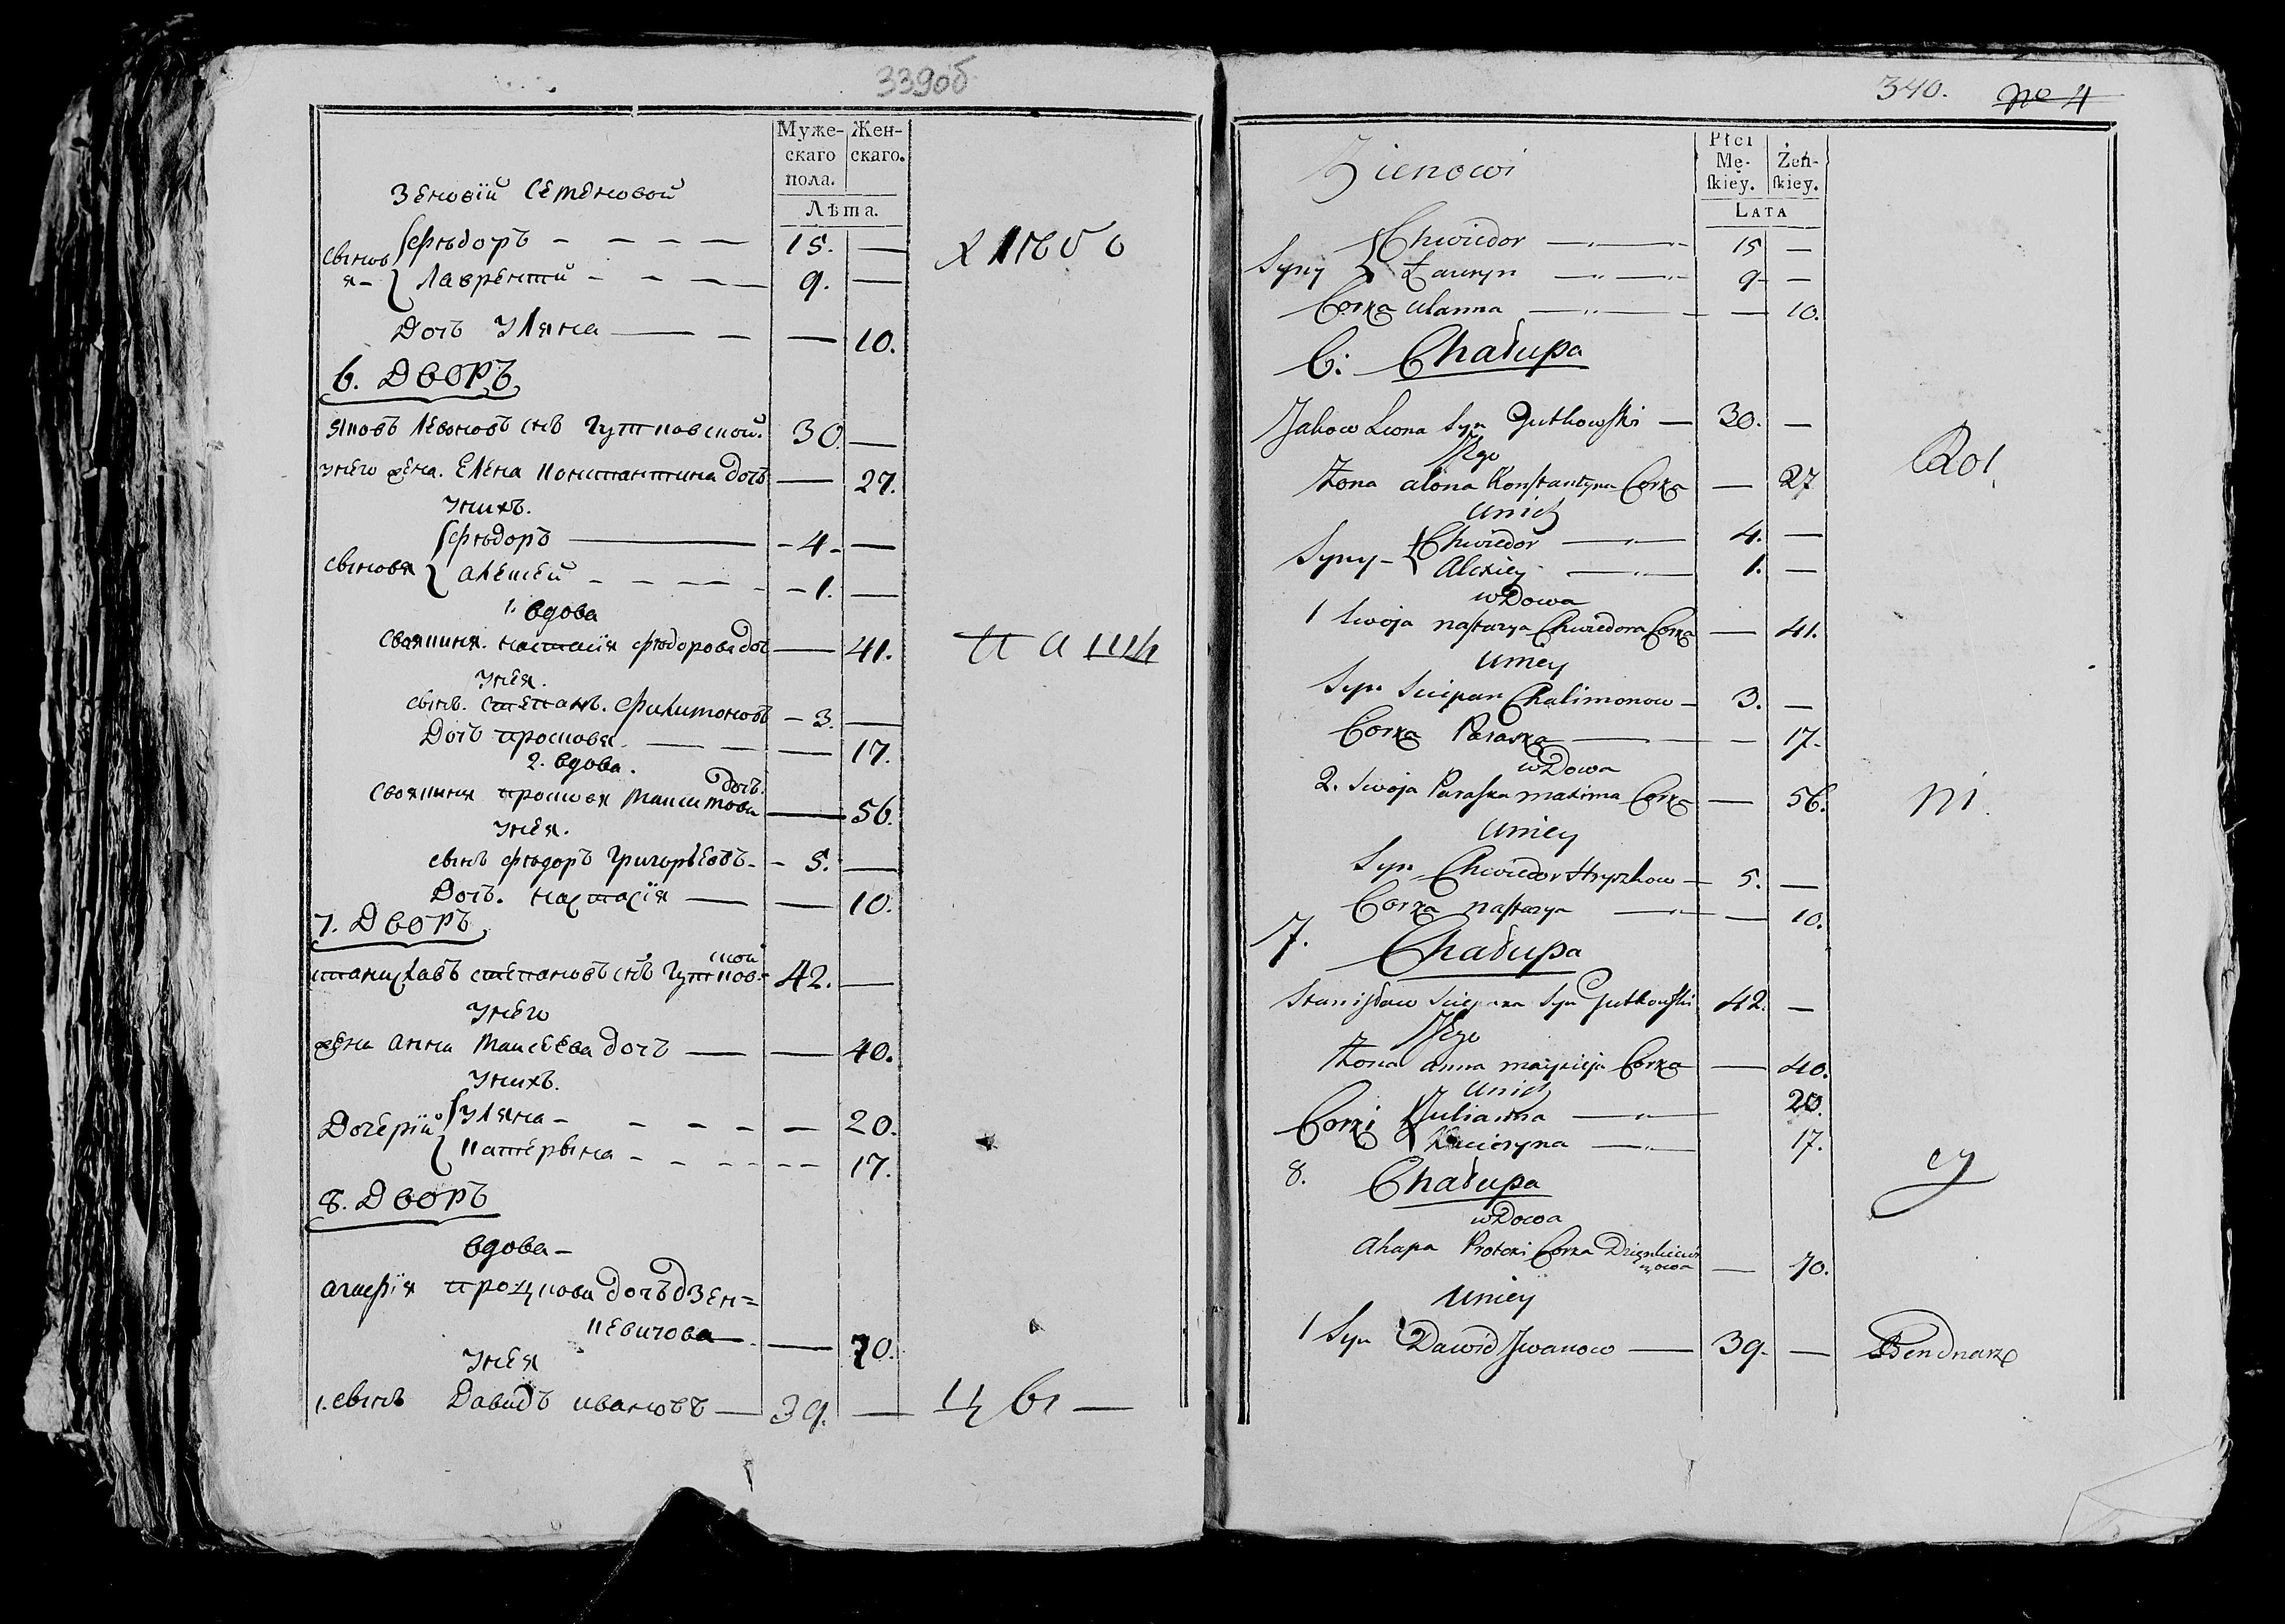 339об
Муже- Жен-
скаго скаго.
пола.
Лѣта.
Зеновiй Семеновой
сынов ѳѣдоръ - - - - 15. —
я- Лаврентiй - - - - 9. —
Дочь Уляна — — — 10.
хлѣбо
6. Дворъ
Яковъ Левоновъ снъ Гутковской. 30. —
унего жена. Елена Константина дочь — 27.
Унихъ.
Фѣдоръ — - 4 - —
сыновя Алексей - - - - - 1. —
1. вдова
своякиня. настасiя фѣдорова доч — 41.
пашъ
Унея.
сынъ. степанъ. Филимоновъ - 3. —
Дочь просковя. — — — 17.
2. вдова.
своякиня просковя Максимова дочь. — 56.
Унея.
сынъ фѣдоръ Григорьевъ - - 5. —
Дочь. настасiя — — 10.
7. Дворъ
станиславъ степановъ снъ Гутковской 42. —
Унего
жена анна Маисеева дочь — — 40.
Унихъ.
Дочерiй Уляна - - - - - — 20.
Катерына - - - - - - 17.
8. Дворъ
вдова -
агафiя процкова дочь дзен=
кевичова — — 70.
Унея
1. сынъ Давидъ ивановъ — 39. — цы —
340. no 4
Płci
Mę- Żeń-
skiey. skiey.
Lata
Zienowi
Syny Chwiedor — 15 —
Ławryn — 9 —
Corka Ulanna — — 10.
6: Chałupa
Jakow Leona Syn Gutkowski — 30. —
Jego
Żona alona Konstantyna Corka — 27
Rol
Unich
Syny - Chwiedor — 4. —
Alexiey — 1. —
wDowa
1 Swoja nastazya Chwiedora Corka — 41.
Uniey
Syn Sciepan Chalimonow — 3. —
Corka Paraska — — 17.
wDowa
2. Swoja Paraska maxima Corka — 56.
ni.
Uniey
Syn Chwiedor Hryszkow — 5. —
Corka nastazya — — 10.
7. Chałupa
Stanisław Sciepana Syn Gutkowski 42. —
Jego
Żona anna mayzieja Corka — 40.
Unich
Corki Julianna — 20.
Kacieryna — 17.
cy
8. Chałupa
wDowa
ahapa Protozi Corka Dzienkiewi
czowa — 70.
Uniey
1 Syn Dawid Jwanow — 39. — Bendnarz